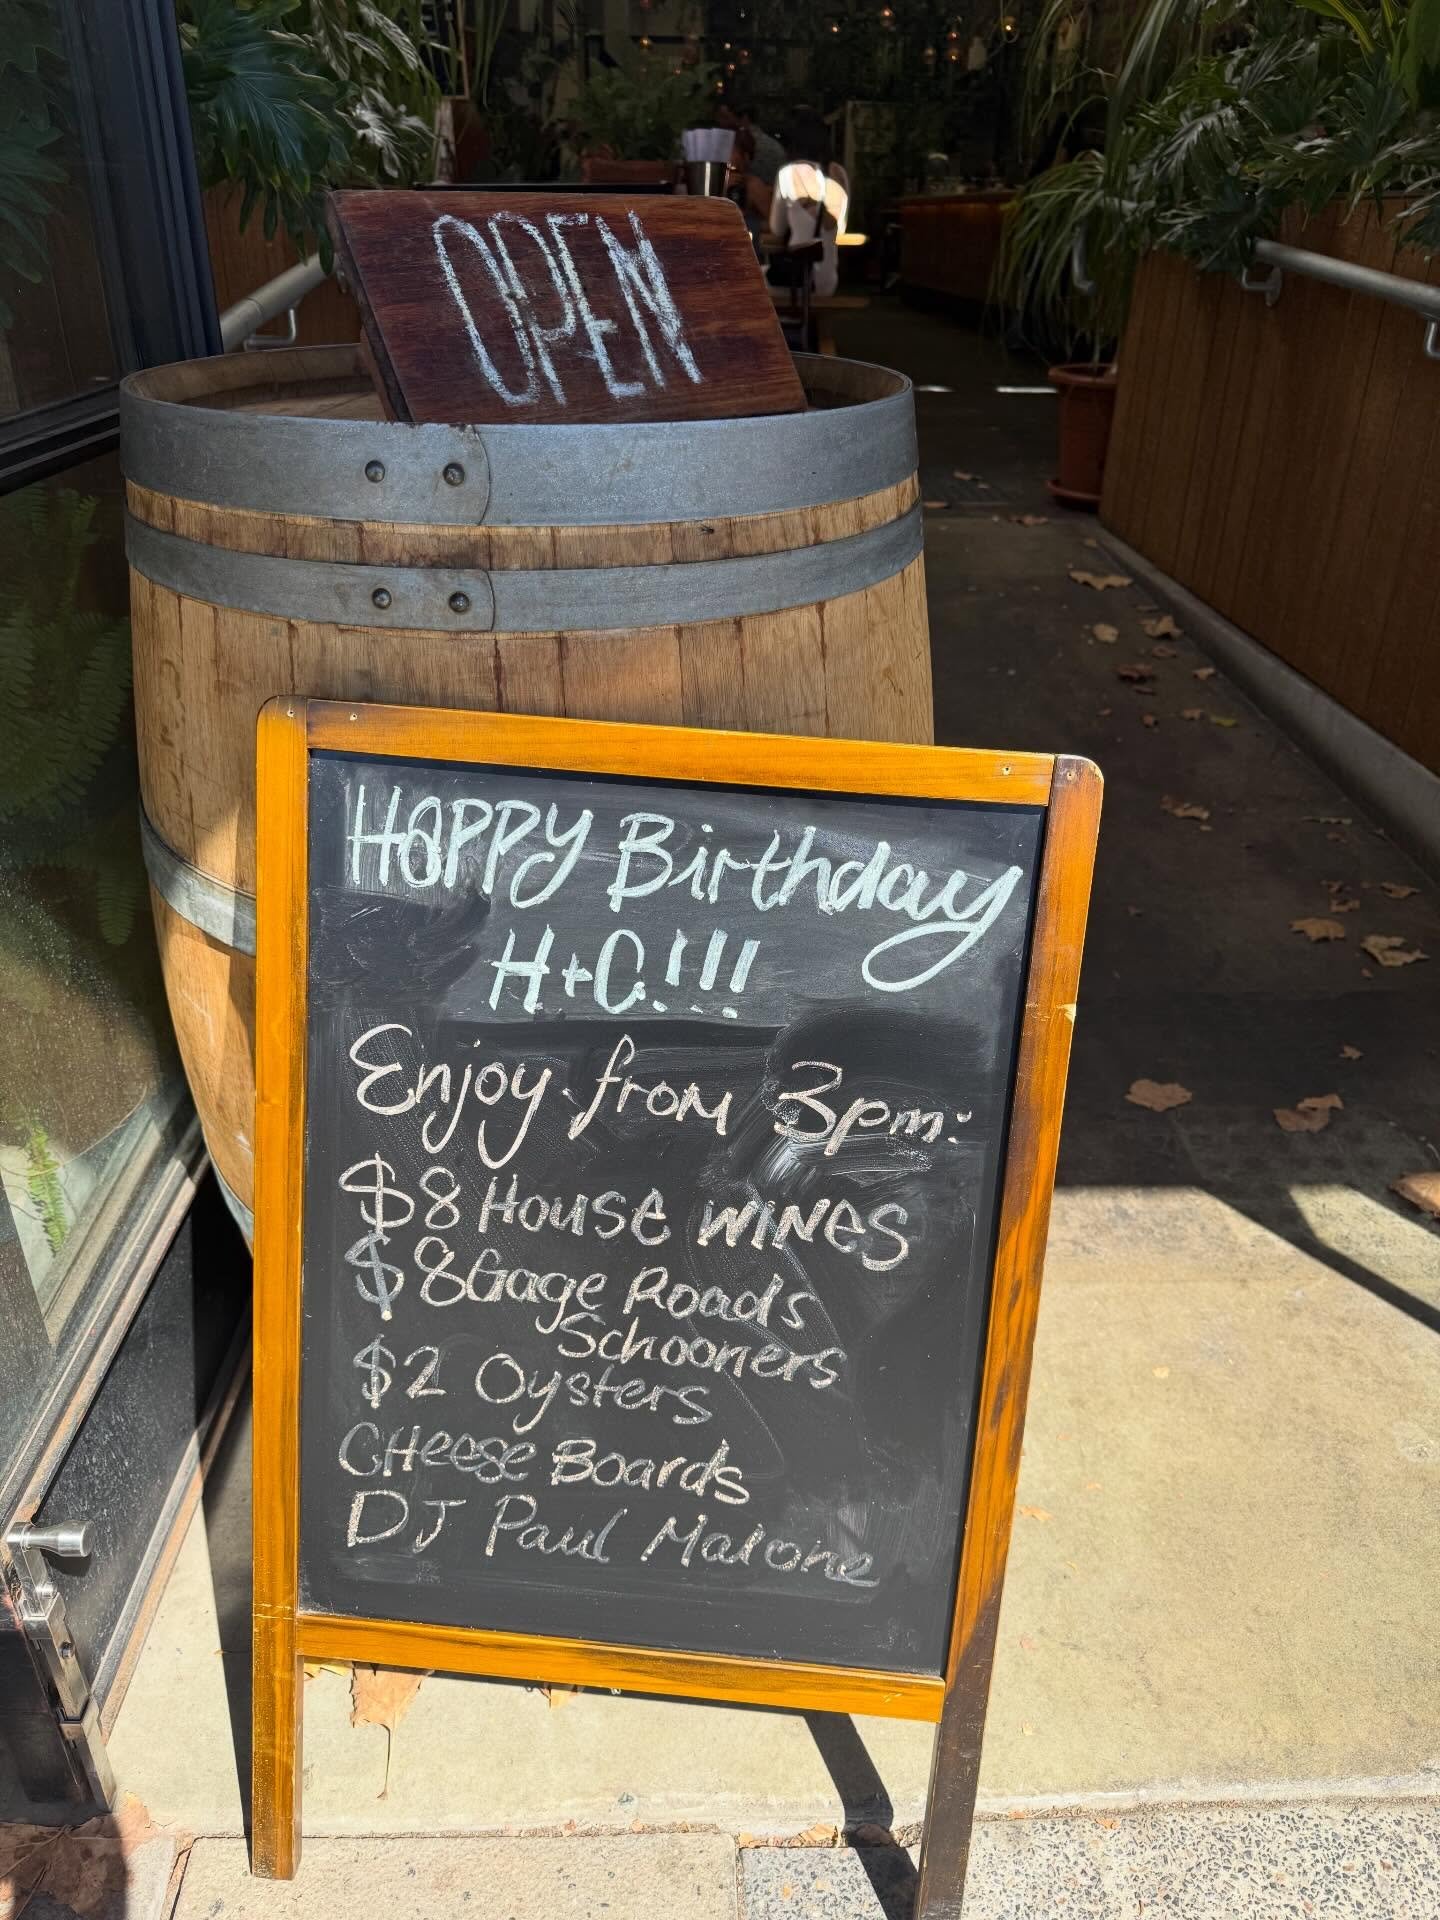 OPEN
HAPPY Birthday
H+C!!!
Enjoy from 3pm:
$8 House WINES
$8 Gage Roads
Schooners
$2 Oysters
CHeese Boards
DJ Paul Malone